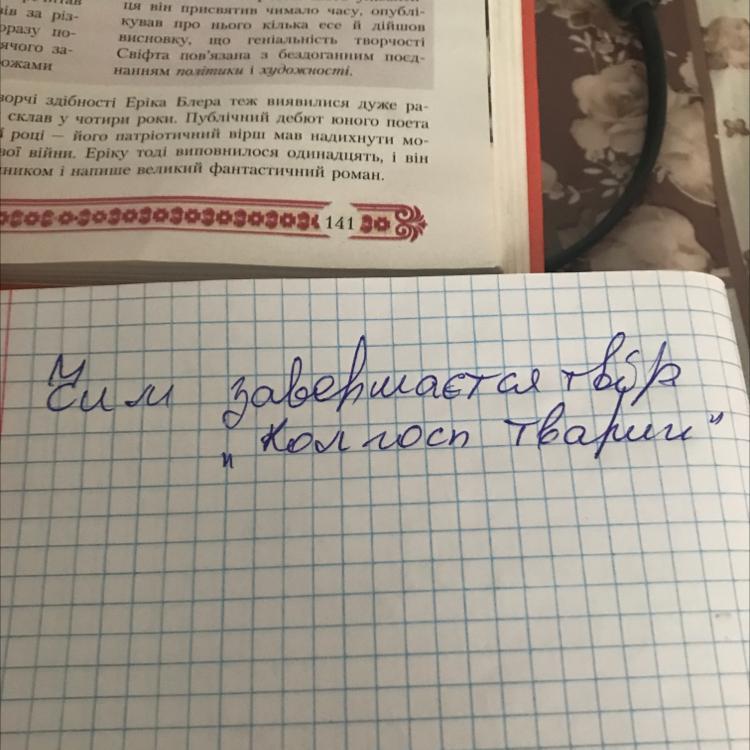 вів за різ-
оразу по-
ячого за-
рожами
ця він присвятив чимало часу, опублі-
кував про нього кілька есе й дійшов
висновку, що геніальність творчості
Свіфта пов'язана з бездоганним поєд-
нанням політики і художності.
ворчі здібності Еріка Блера теж виявилися дуже ра-
склав у чотири роки. Публічний дебют юного поета
році — його патріотичний вірш мав надихнути мо-
вої війни. Еріку тоді виповнилося одинадцять, і він
ником і напише великий фантастичний роман.
141
Чим завершается твір
„Колгосп тварин"